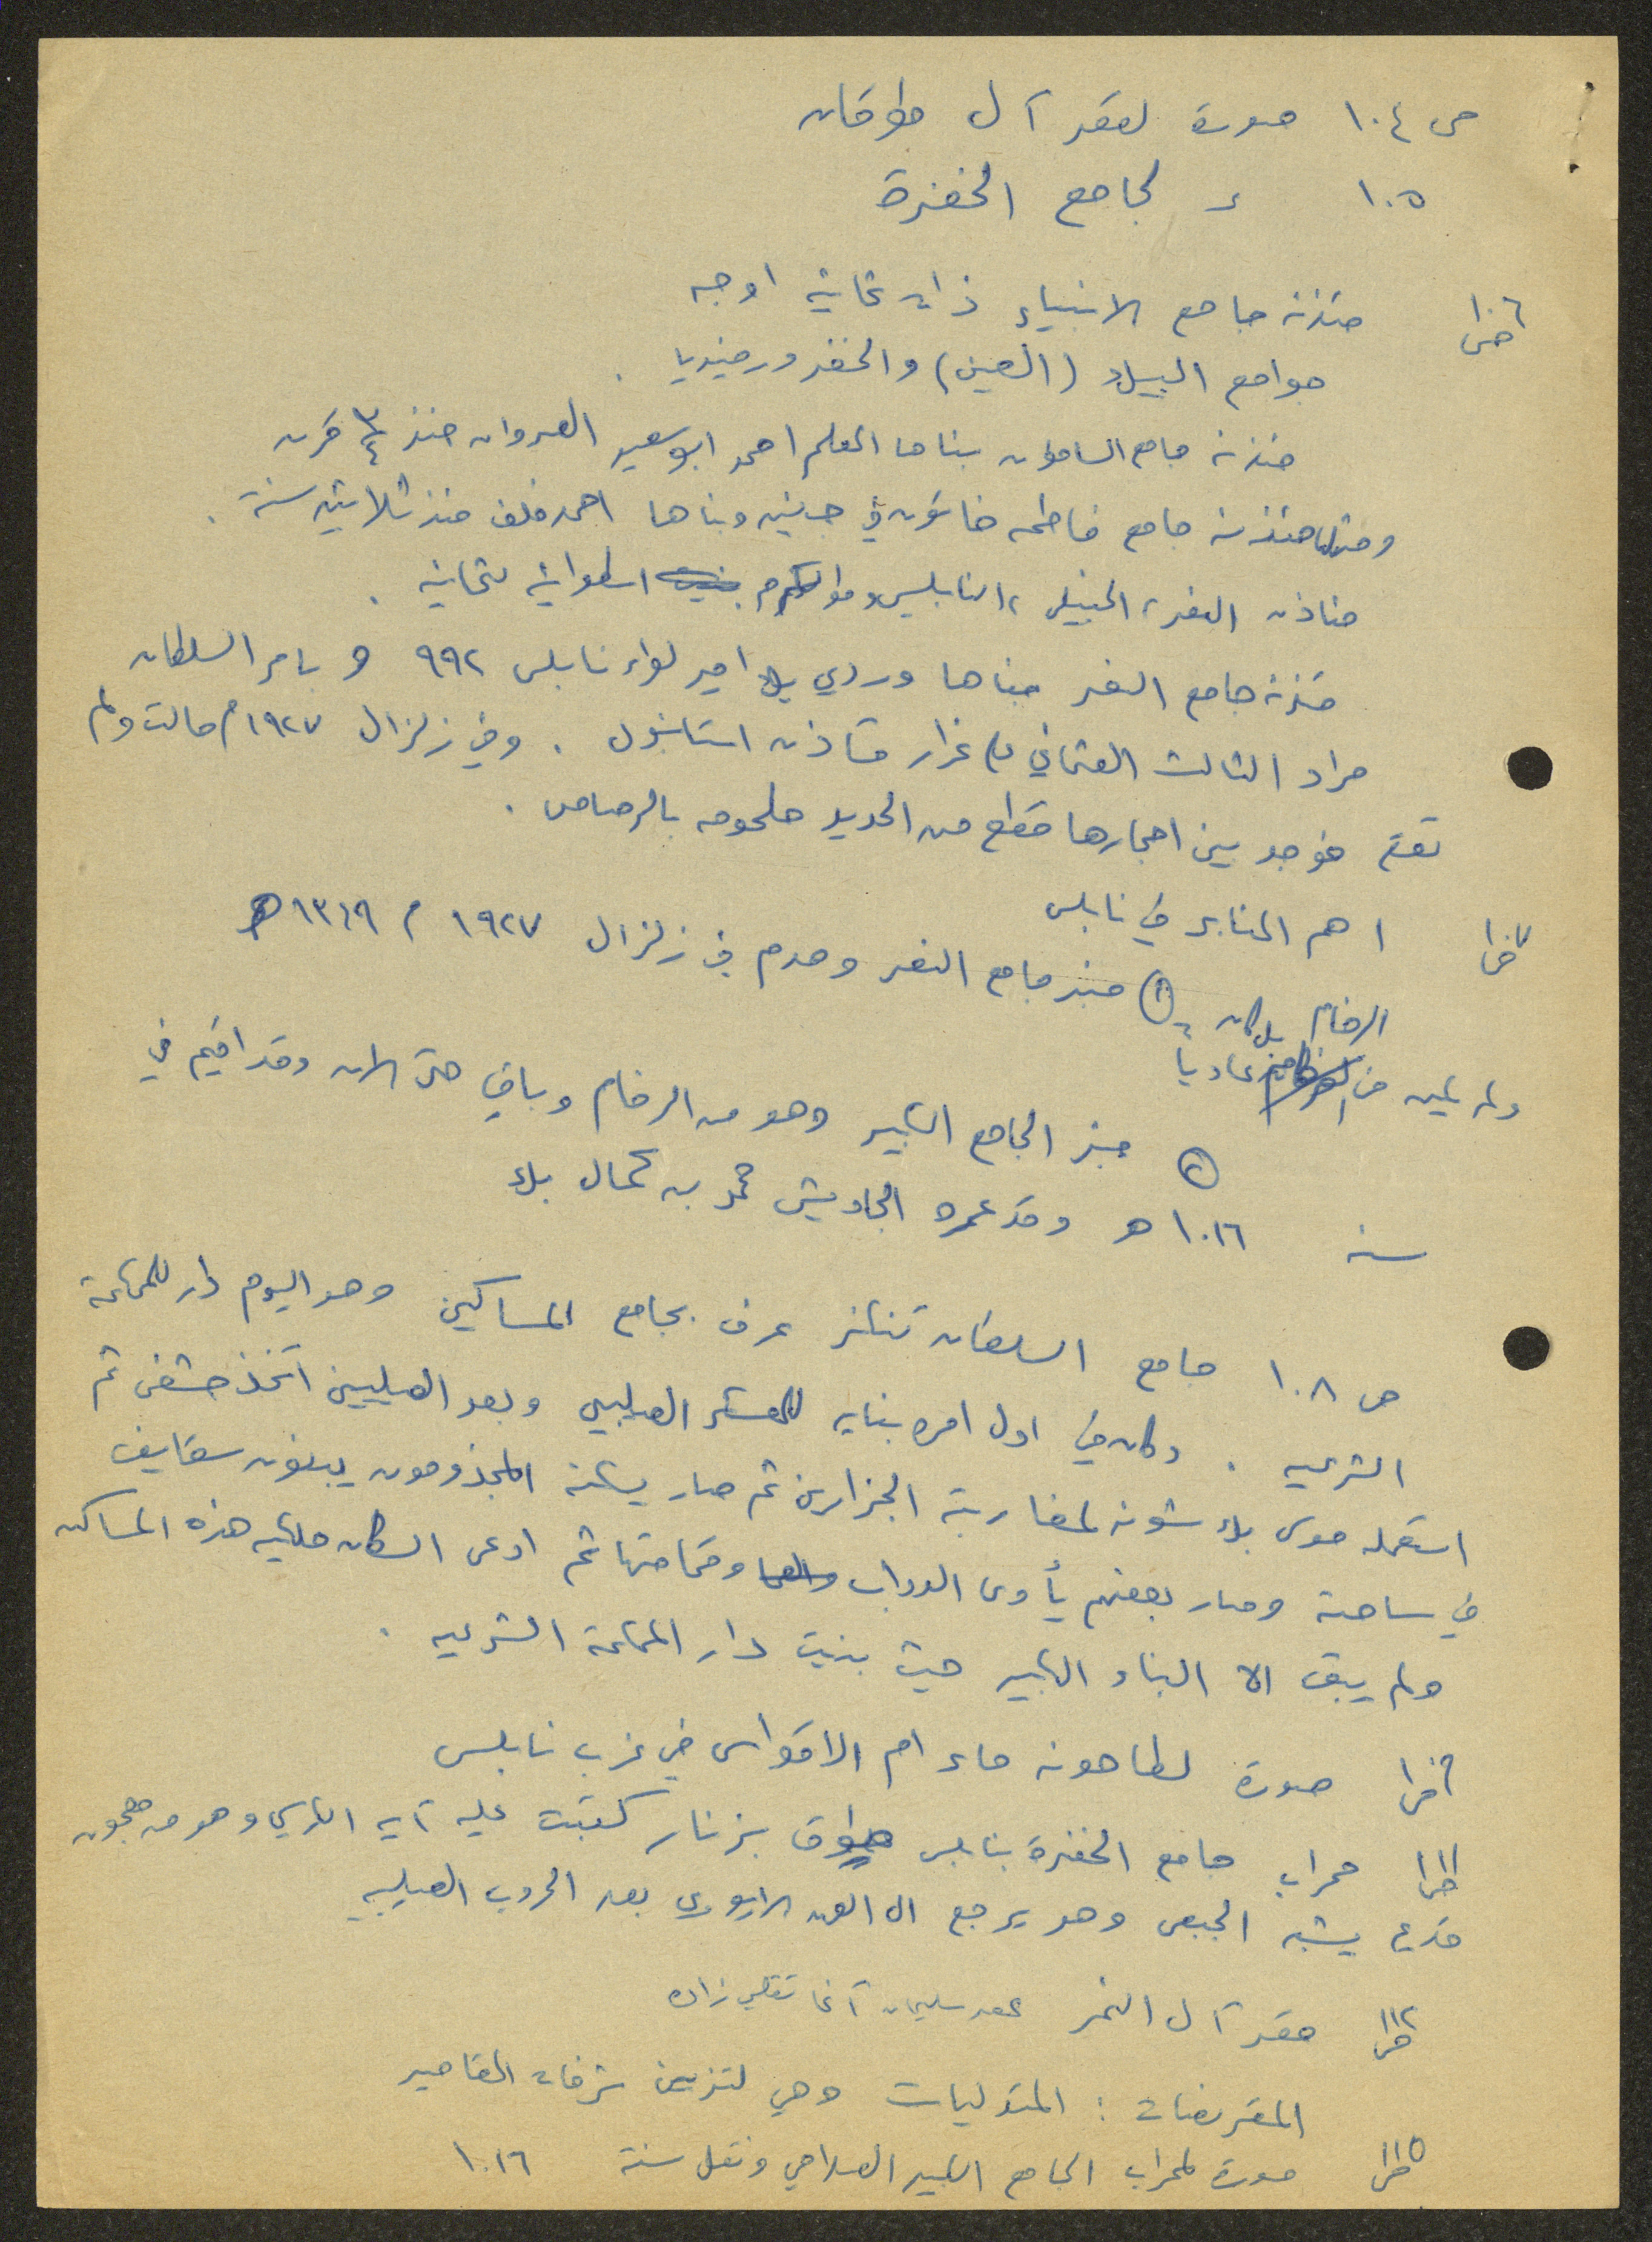 ص ١٠٤ صورة لقصر آل طوقان
١٠٥ = لجامع الخضرة
ص ١٠٦ مئذنة جامع الانبياء ذات ثمانية اوجه
جوامع البيك (العين) والخضر ورفيديا .
مئذنة جامع الساطون بناها المعلم احمد ابو سعيد العدوان منذ ٣/٤ قرن
ومثلها مئذنة جامع فاطمه خاتون في جنين وبناها احمد خلف منذ ثلاثين سنة .
مآذن النصر، الحنبلي، النابلسي اسطوانية ثمانيه .
مئذنة جامع النصر بناها وردي بك امير لواء نابلس ٩٩٢ ه بامر السلطان
مراد الثالث العثماني على غرار مآذن استانبول . وفي زلزال ١٩٢٧م مالت ولم
تقع فوجد بين احجارها قطع من الحديد ملحومه بالرصاص .
ص ١٠٧ اهم المنابر في نابلس
(١) منبر جامع النصر وهدم في زلزال ١٩٢٧ م
ولم يكن من الرخام بل كان عاديا
(٢) منبر الجامع الكبير وهو من الرخام وباقي حتى الان وقد اقيم في
سنة ١٠١٦ ه وقد عمره الجاويش محمد بن كمال بك
ص ١٠٨ جامع السلطان تنكز عرف بجامع المساكين وهو اليوم دار للمحكمة
الشرعيه . وكان في اول امره بنايه للعسكر الصليبي وبعد الصليبيين اتخذ مشفى ثم
استعمله موسى بك شونه لمغاربة الجزارين ثم صار يسكنه المجذومون يبنون سقايف
في ساحته وصار بعضهم يأوى الدواب وقمامتها ثم ادعى السكان ملكيه هذه المساكن
ولم يبق الا البناء الكبير حيث بنيت دار المحكمة الشرعيه .
ص ١٠٩ صورة لطاحونه ماء ام الاقواس في غرب نابلس
ص ١١١ محراب جامع الخضرة بنابلس مطوق بزنار كتبت عليه آيه الكرسي وهو من معجون
قديم يشبه الجبص وهو يرجع الى العهد الايوبي بعد الحروب الصليبيه
ص ١١٢ قصر آل النمر
المقرنصات : المتدليات وهي لتزيين شرفات المقاصير
ص ١١٥ صورة لمحراب الجامع الكبير الصلاحي ونقل سنة ١٠١٦